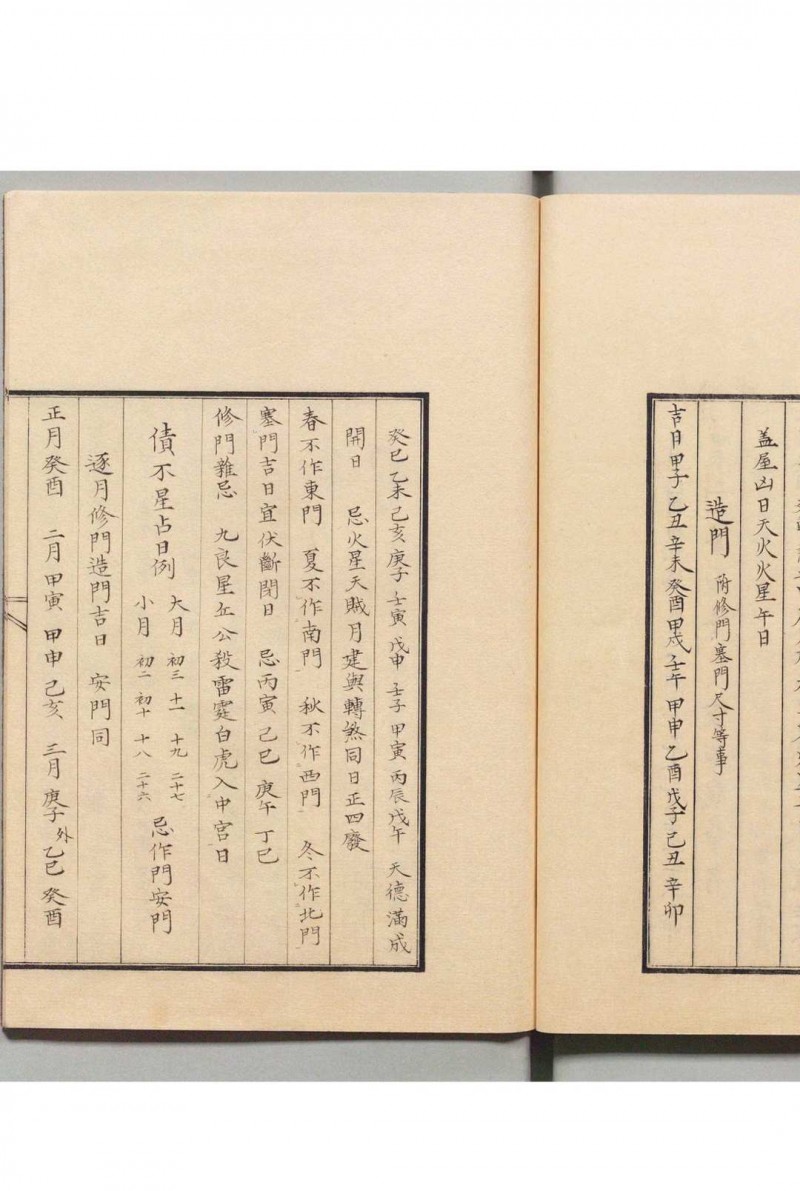 蓋屋凶日天火火星午日
造門 附修門塞門尺寸等事
吉日甲子 乙丑 辛未 癸酉 甲戌 壬午 甲申 乙酉 戊子 己丑 辛卯
癸巳 乙未 己亥 庚子 壬寅 戊申 壬子 甲寅 丙辰 戊午 天德滿成
開日 忌火星天賊月建與轉煞同日正四廢
春不作東門 夏不作南門 秋不作西門 冬不作北門
塞門吉日宜伏斷閉日 忌丙寅 己巳 庚午 丁巳
修門雜忌 九良星丘公殺雷霆白虎入中宮日
債不星占日例
大月 初三 十一 十九 二十七
小月 初二 初十 十八 二十六
忌作門安門
逐月修門造門吉日 安門同
正月癸酉 二月甲寅 甲申 己亥 三月庚子 外乙巳 癸酉